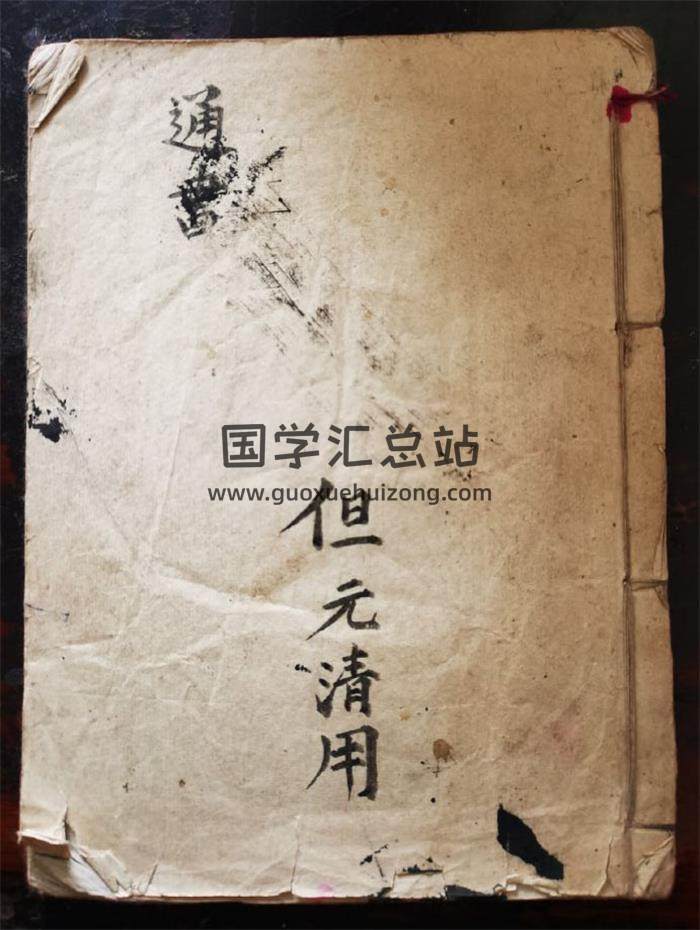 通書
国学汇总站
www.guoxuehuizong.com
但元清用